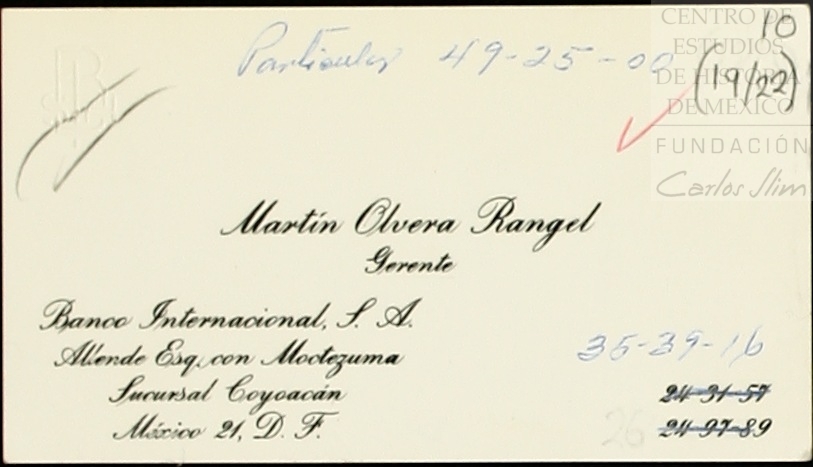 Particular 49-25-00
10
(19/22)
CENTRO DE
ESTUDIOS
DE HISTORIA
DE MÉXICO
FUNDACIÓN
Carlos Slim
Martín Olvera Rangel
Gerente
Banco Internacional, S. A.
Allende Esq. con Moctezuma
Sucursal Coyoacán
México 21, D. F.
35-39-16
24-31-57
26
24-97-89